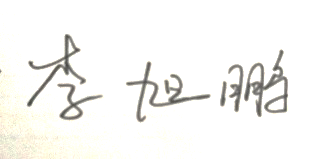 李旭鹏